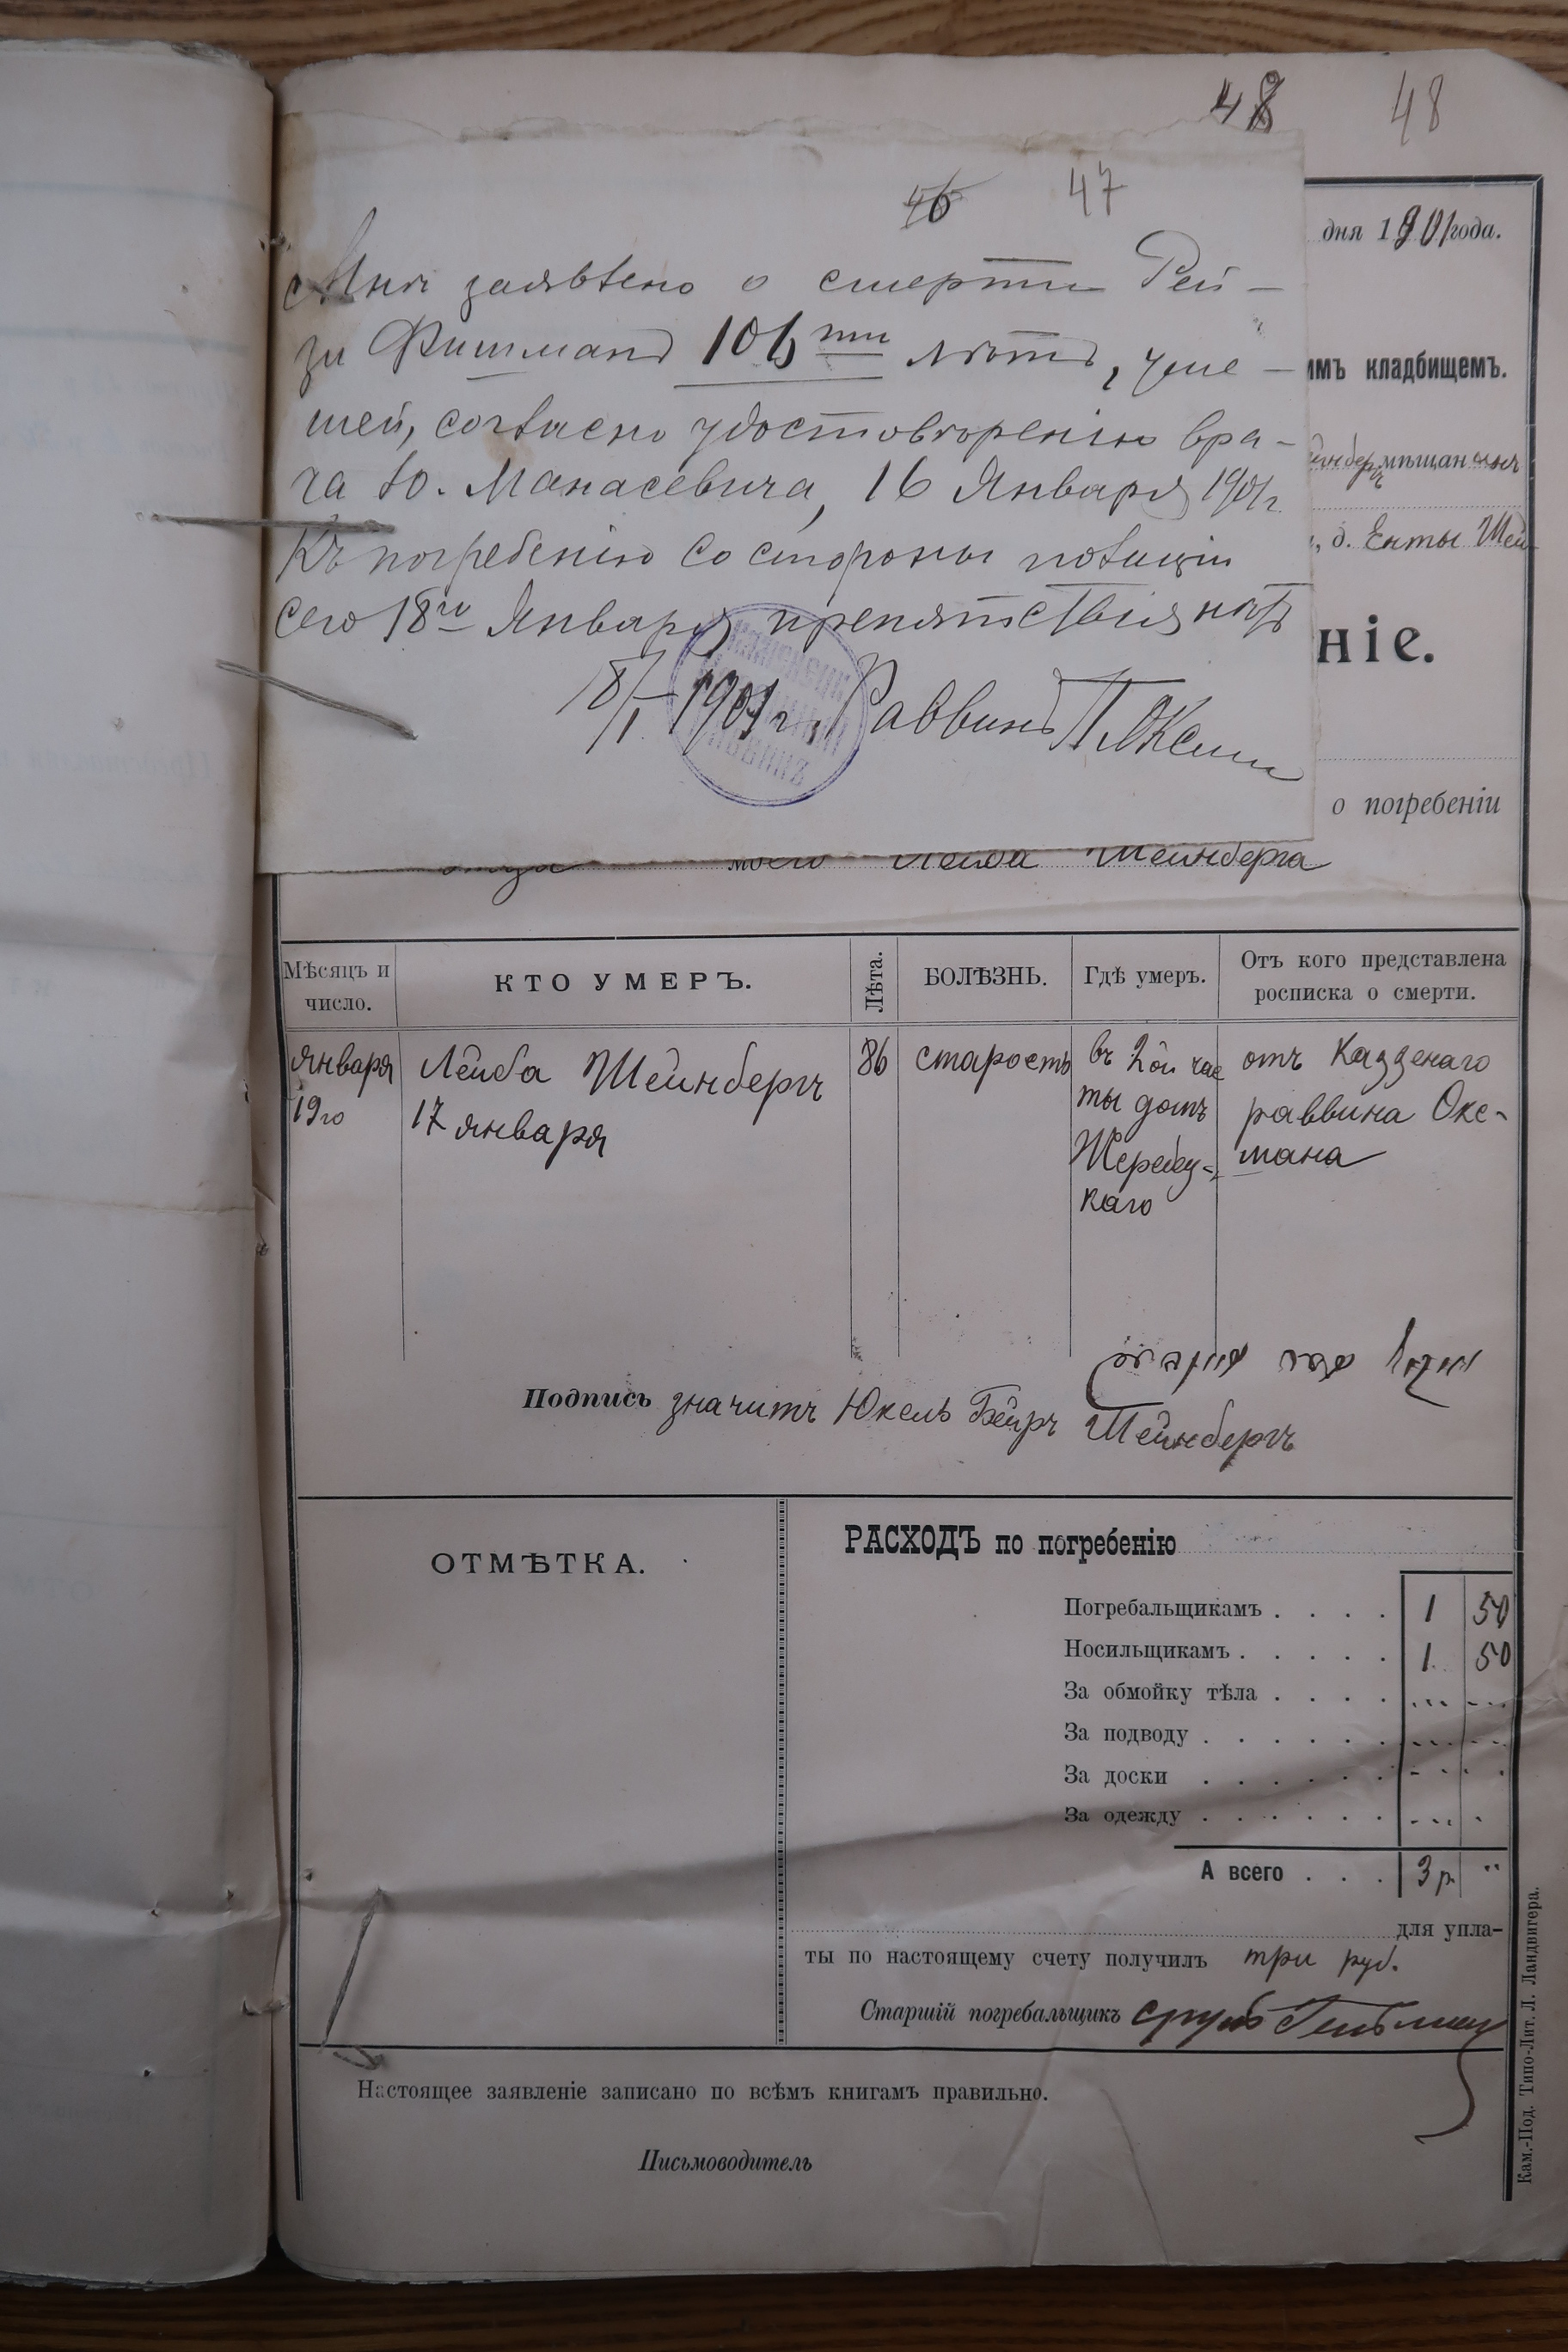 48 48
46 47
Мнѣ заявлено о смерти Рей-
зи Фишманъ 106ти лѣтъ, уме-
шей, согласно удостовѣренію вра-
ча Ю. Манасевича, 16 Января 1901 г.
Къ погребенію со стороны полиціи
сего 18го Января препятствія нѣтъ
18/I 1901 г. Раввинъ П. Оксман
дня 1901 года.
имъ кладбищемъ.
мѣщанинъ
д. Енты Шей
ніе.
о погребеніи
отца моего Лейба Шейнберга
Мѣсяцъ и число. КТО УМЕРЪ. Лѣта. БОЛѢЗНЬ. Гдѣ умеръ. Отъ кого представлена росписка о смерти.
Января Лейба Шейнбергъ 86 старость въ 2ой час отъ Казенаго
19го 17 января ты домъ раввина Окс-
мана
каго
Подпись значитъ Юкель Бейръ Шейнбергъ
ОТМѢТКА.
РАСХОДЪ по погребенію
Погребальщикамъ . . . . 1 50
Носильщикамъ . . . . . 1 50
За обмойку тѣла . . . .
За подводу . . . . . .
За доски . . . . . .
За одежду . . . . . .
А всего . . . 3 р. "
для упла-
ты по настоящему счету получилъ три руб.
Старшій погребальщикъ
Настоящее заявленіе записано по всѣмъ книгамъ правильно.
Письмоводитель
Кам.-Под. Типо-Лит. Л. Ландвигера.